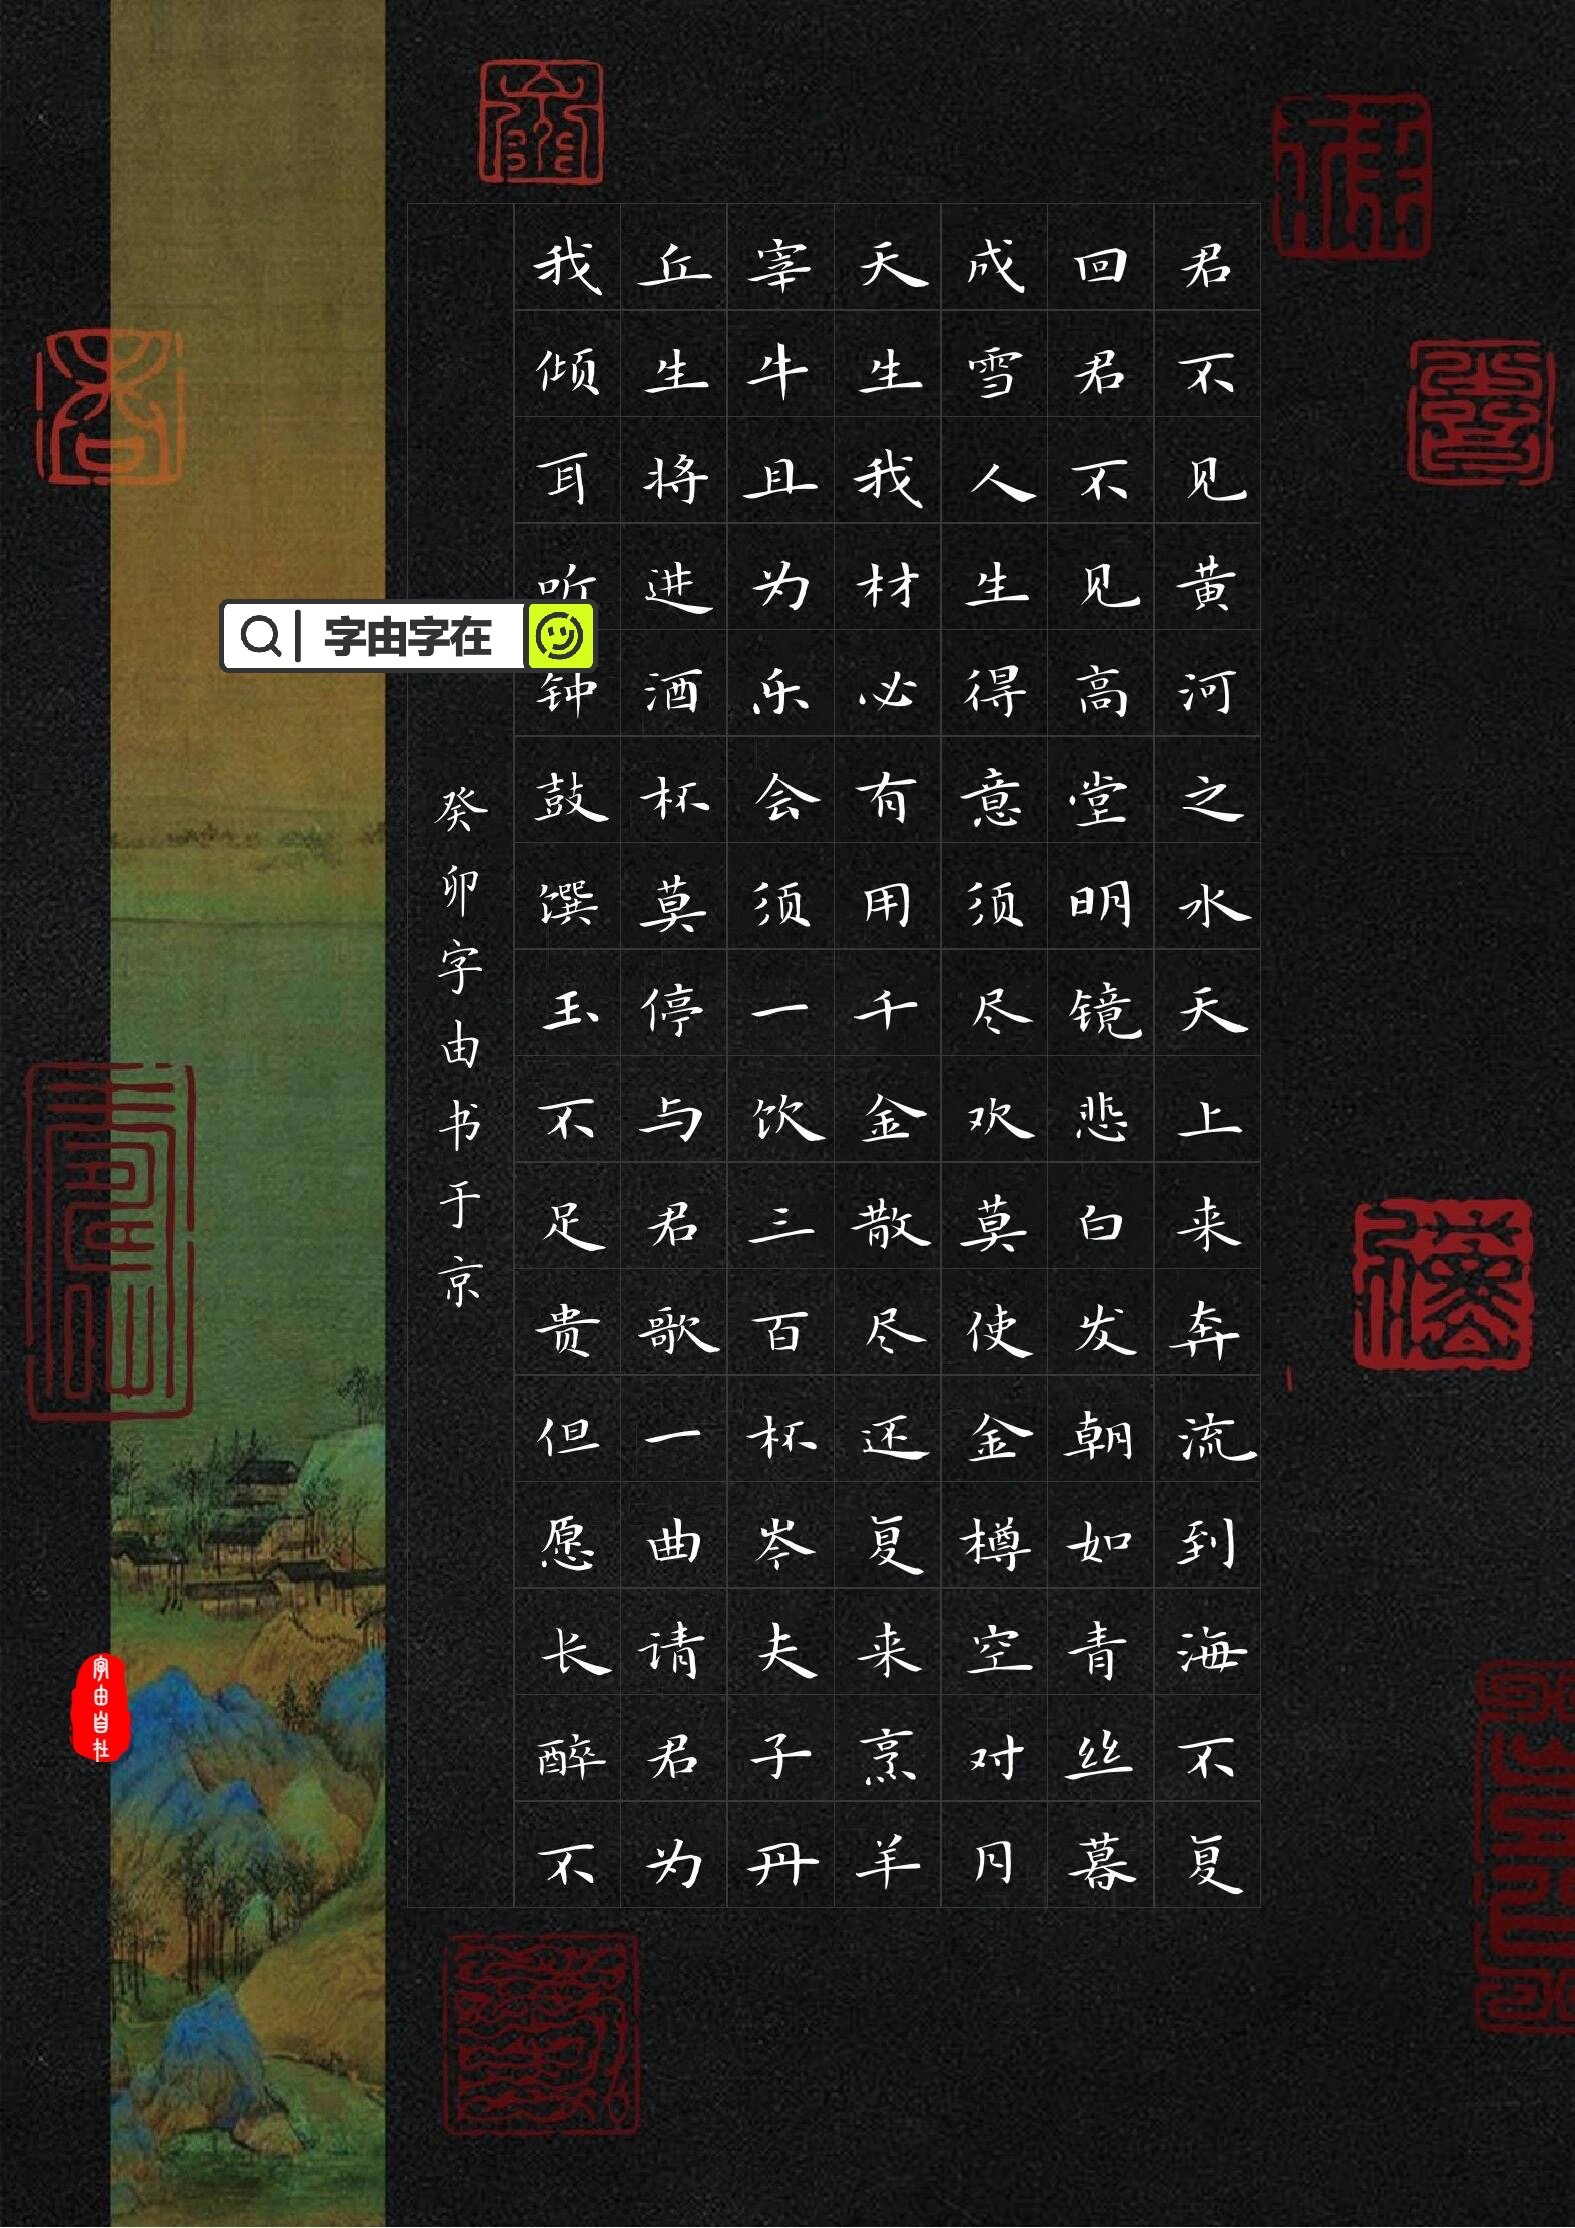 君不见黄河之水天上来奔流到海不复
回君不见高堂明镜悲白发朝如青丝暮
成雪人生得意须尽欢莫使金樽空对月
天生我材必有用千金散尽还复来烹羊
宰牛且为乐会须一饮三百杯岑夫子丹
丘生将进酒杯莫停与君歌一曲请君为
我倾耳听钟鼓馔玉不足贵但愿长醉不
癸卯字由书于京
字由字在
字由自社